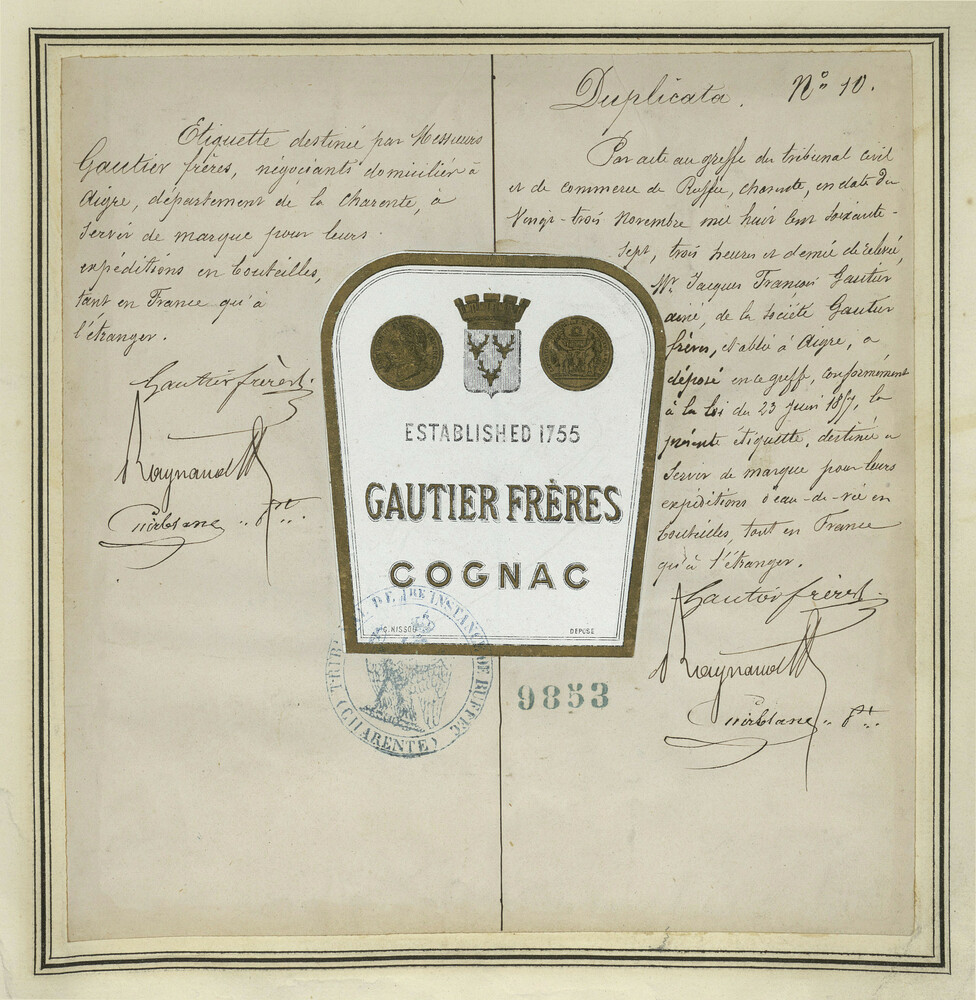 Etiquette destinée par Messieurs
Gautier frères, négociants domiciliés à
Aigre, département de la Charente, à
servir de marque pour leurs
expéditions en bouteilles,
tant en France qu'à
l'étranger.
Gautier frères
Raynaud
Duplicata. N° 10.
Par acte au greffe du tribunal civil
et de commerce de Ruffec, charente, en date du
Vingt-trois Novembre mil huit cent soixante-
sept, trois heures et demie de relevé,
Mr. Jacques François Gautier
ainé, de la société Gautier
frères, établie à Aigre, a
déposé en ce greffe, conformément
à la loi du 23 Juin 1857, la
présente étiquette, destinée à
servir de marque pour leurs
expéditions d'eau-de-vie en
bouteilles, tant en France
qu'à l'étranger.
Gautier frères
Raynaud
ESTABLISHED 1755
GAUTIER FRÈRES
COGNAC
G. NISSOU
DÉPOSÉ
TRIBUNAL DE 1RE INSTANCE DE RUFFEC
(CHARENTE)
9853